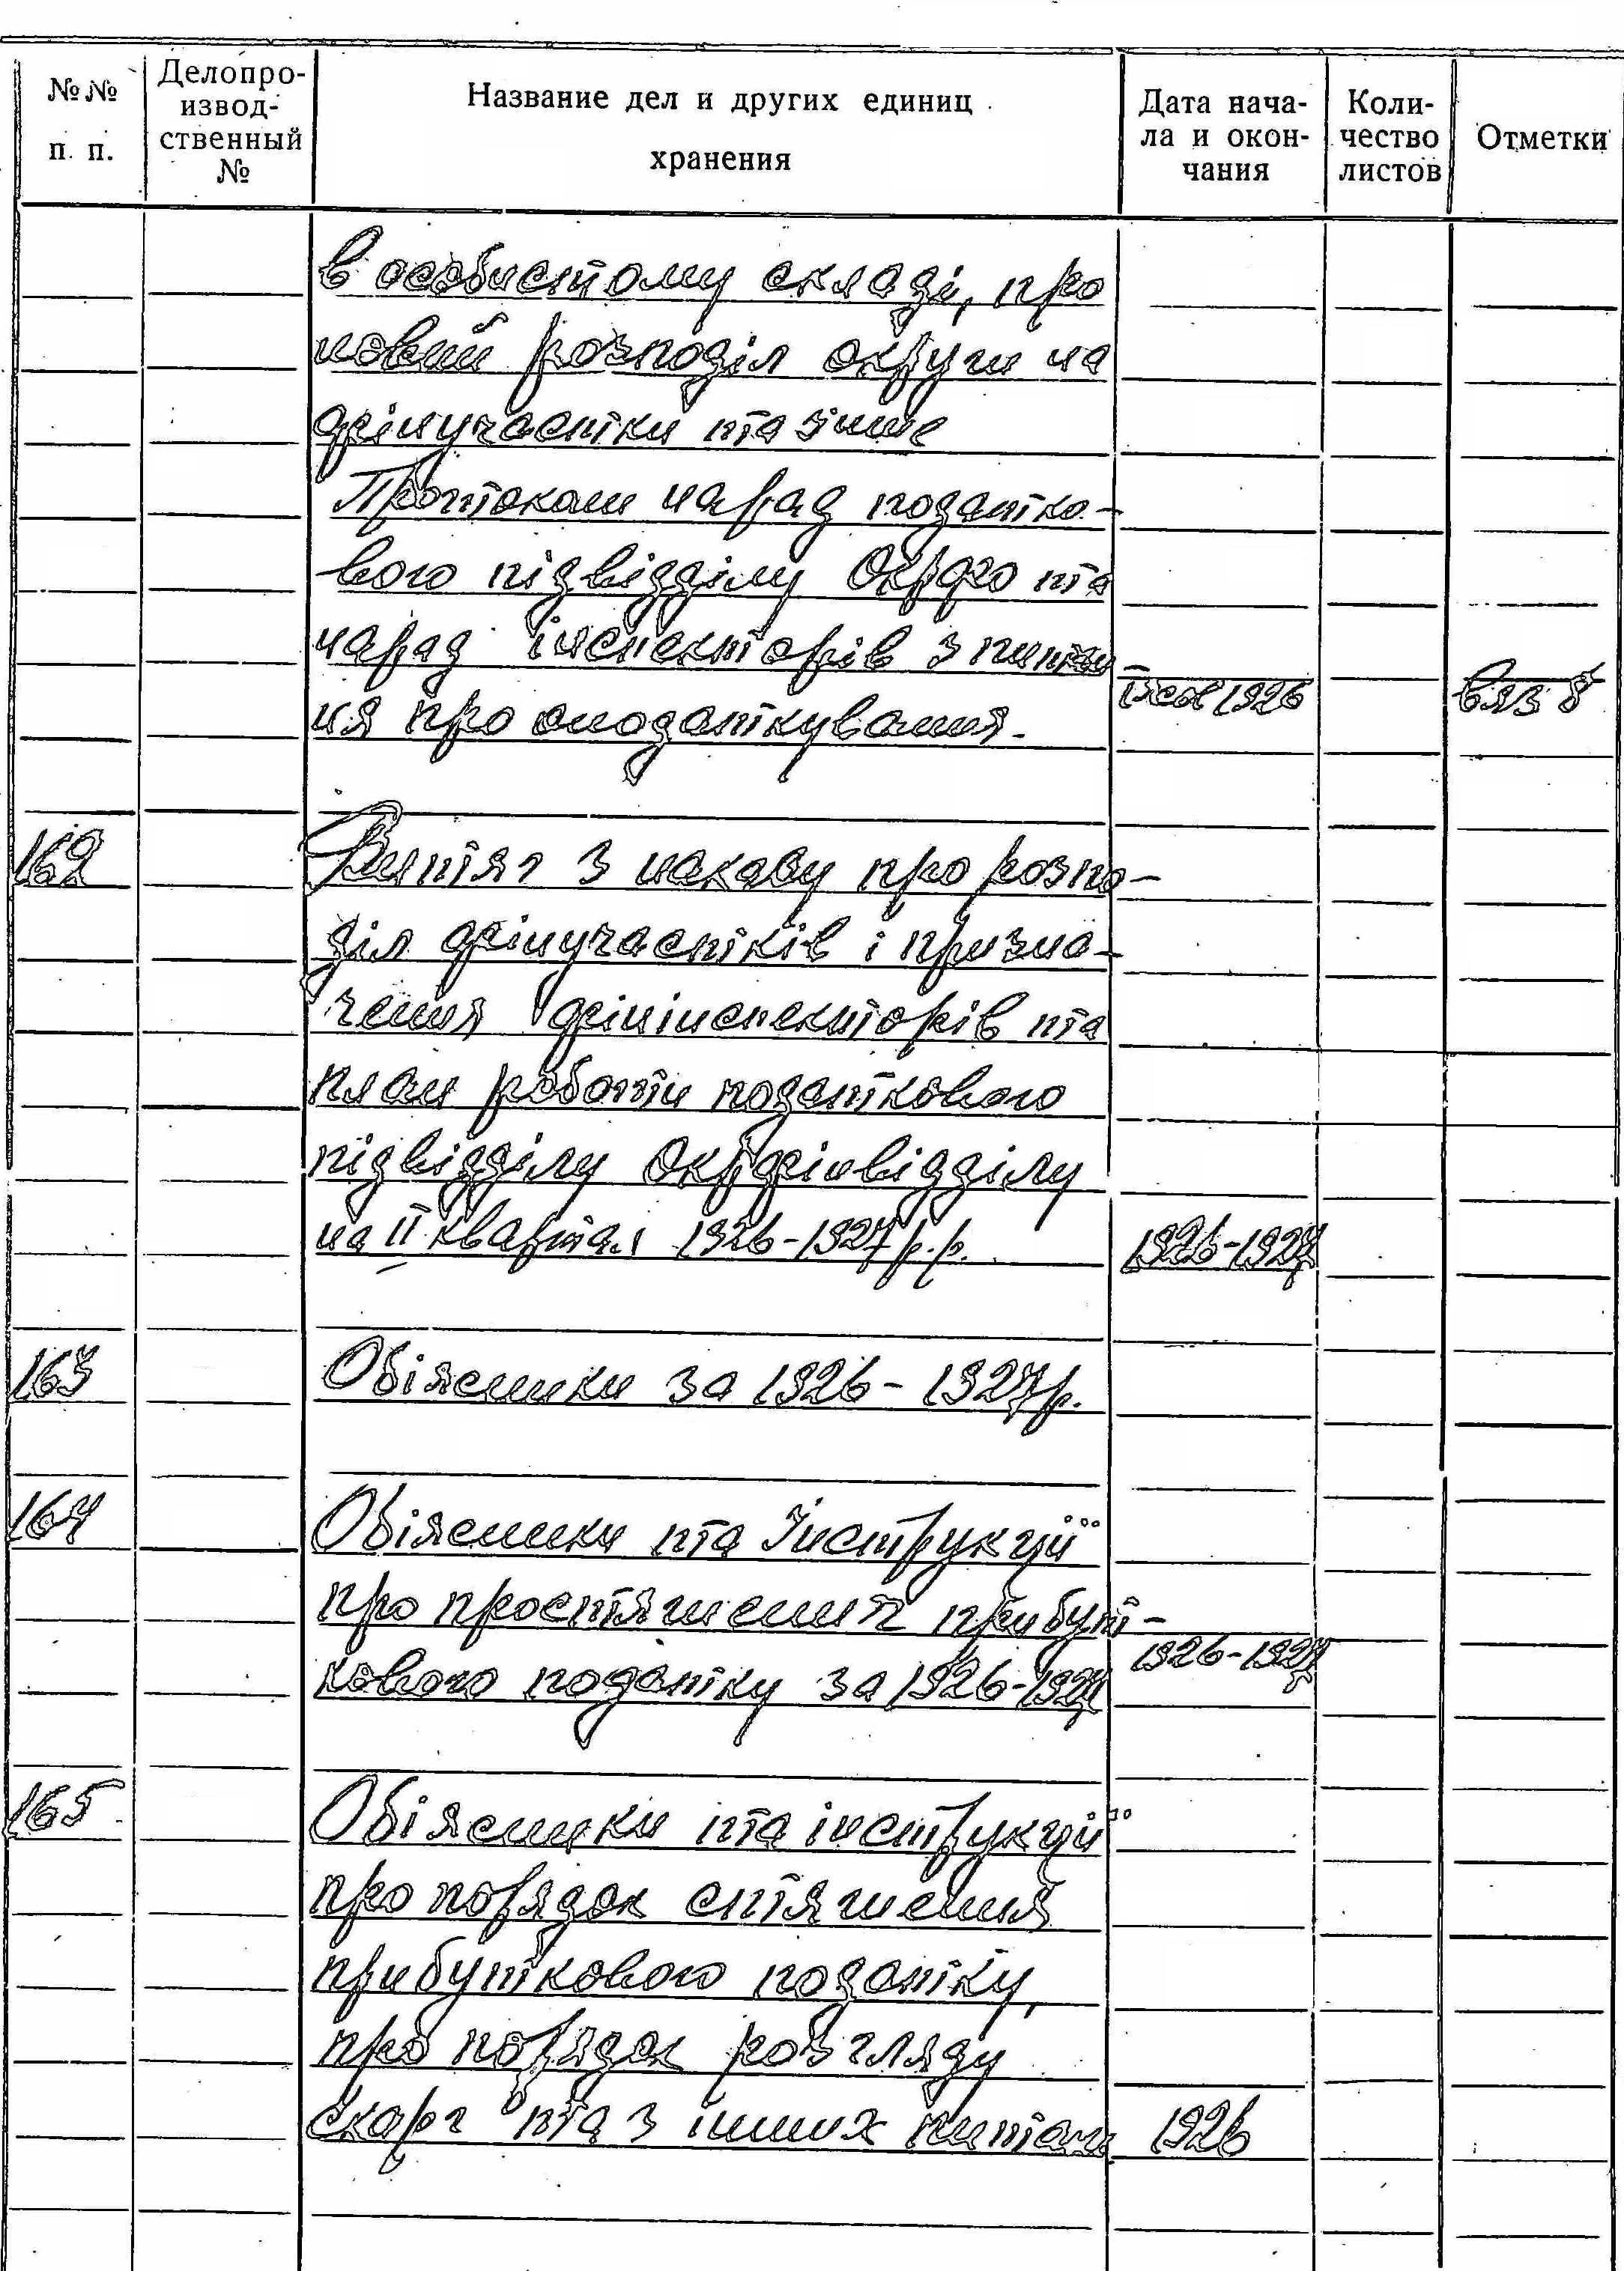 №№ п. п.
Делопро-
извод-
ственный
№
Название дел и других единиц
хранения
Дата нача-
ла и окон-
чания
Коли-
чество
листов
Отметки
в особистому складі, про
новий розподіл округи на
фінучастки та інше
Протоколи нарад податко-
вого підвідділу Окрфо та
нарад інспекторів з питан-
ня про оподаткування.
1926
вяз 8
162
Витяг з наказу про розпо-
діл фінучастків і призна-
чення фінінспекторів та
план роботи податкового
підвідділу Окрфінвідділу
на II квартал 1926-1927 р.р.
1926-1927
163
Обіясники за 1926-1927р.
164
Обіясники та Інструкції
про простягнення прибут-
кового податку за 1926-1927
1926-1927
165
Обіясники та інструкції
про порядок стягнення
прибуткового податку,
про порядок розгляду
скарг та з інших питань
1926